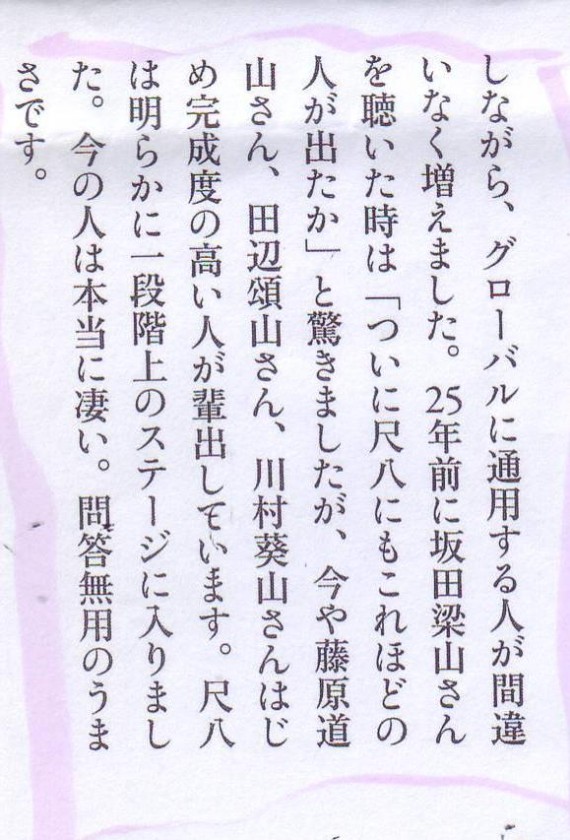 しながら、グローバルに通用する人が間違
いなく増えました。25年前に坂田梁山さん
を聴いた時は「ついに尺八にもこれほどの
人が出たか」と驚きましたが、今や藤原道
山さん、田辺頌山さん、川村葵山さんはじ
め完成度の高い人が輩出しています。尺八
は明らかに一段階上のステージに入りまし
た。今の人は本当に凄い。問答無用のうま
さです。